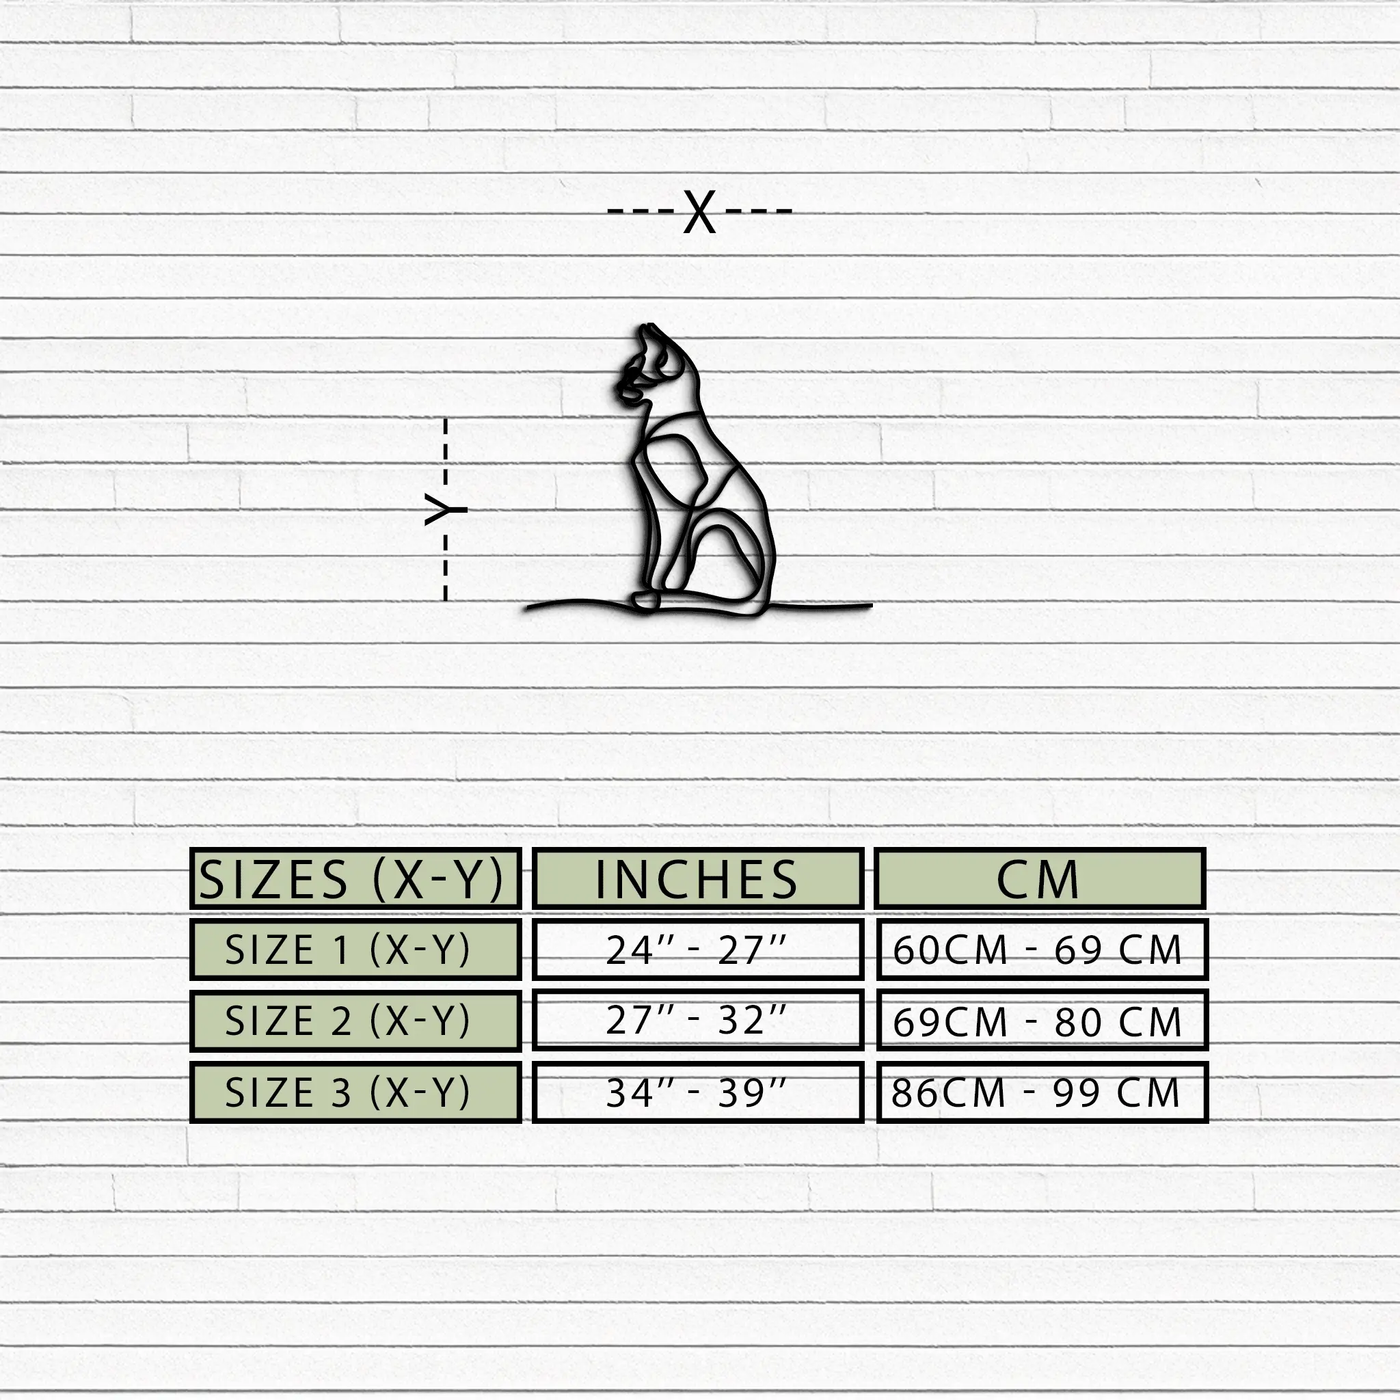 ---X---
---Y---
SIZES (X-Y) INCHES CM
SIZE 1 (X-Y) 24’’ - 27’’ 60CM - 69 CM
SIZE 2 (X-Y) 27’’ - 32’’ 69CM - 80 CM
SIZE 3 (X-Y) 34’’ - 39’’ 86CM - 99 CM